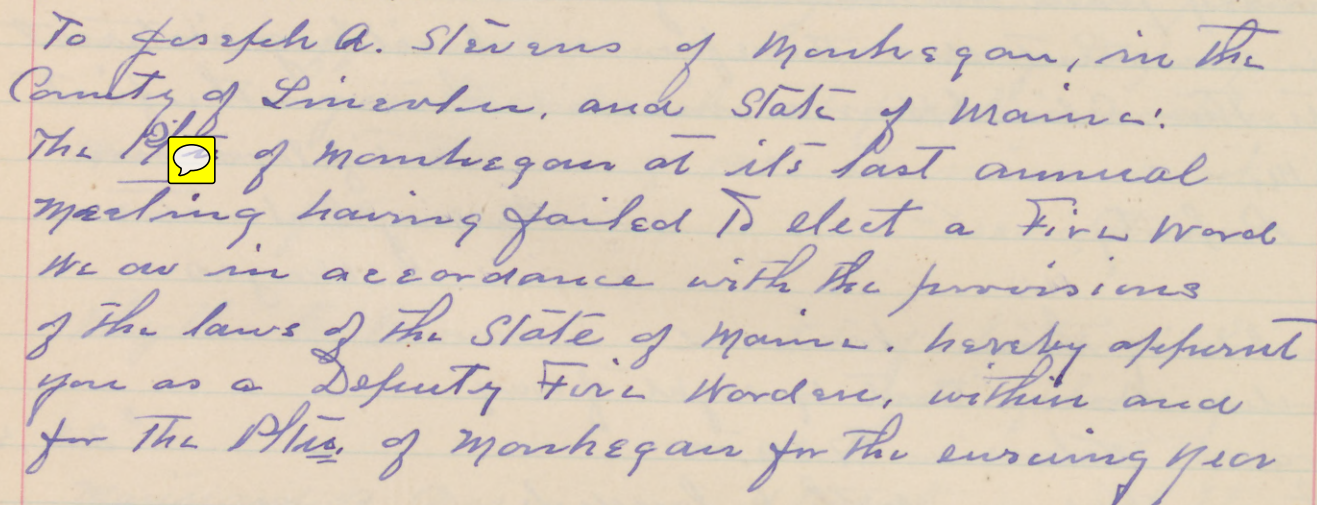 To Joseph A. Stevens of Monhegan, in the
County of Lincoln, and State of Maine:
The of Monhegan at its last annual
meeting having failed To elect a Fire Ward
We do in accordance with the provisions
of the laws of the State of Maine. hereby appoint
you as a Deputy Fire Warden, within and
for The Pltn. of Monhegan for the ensuing year